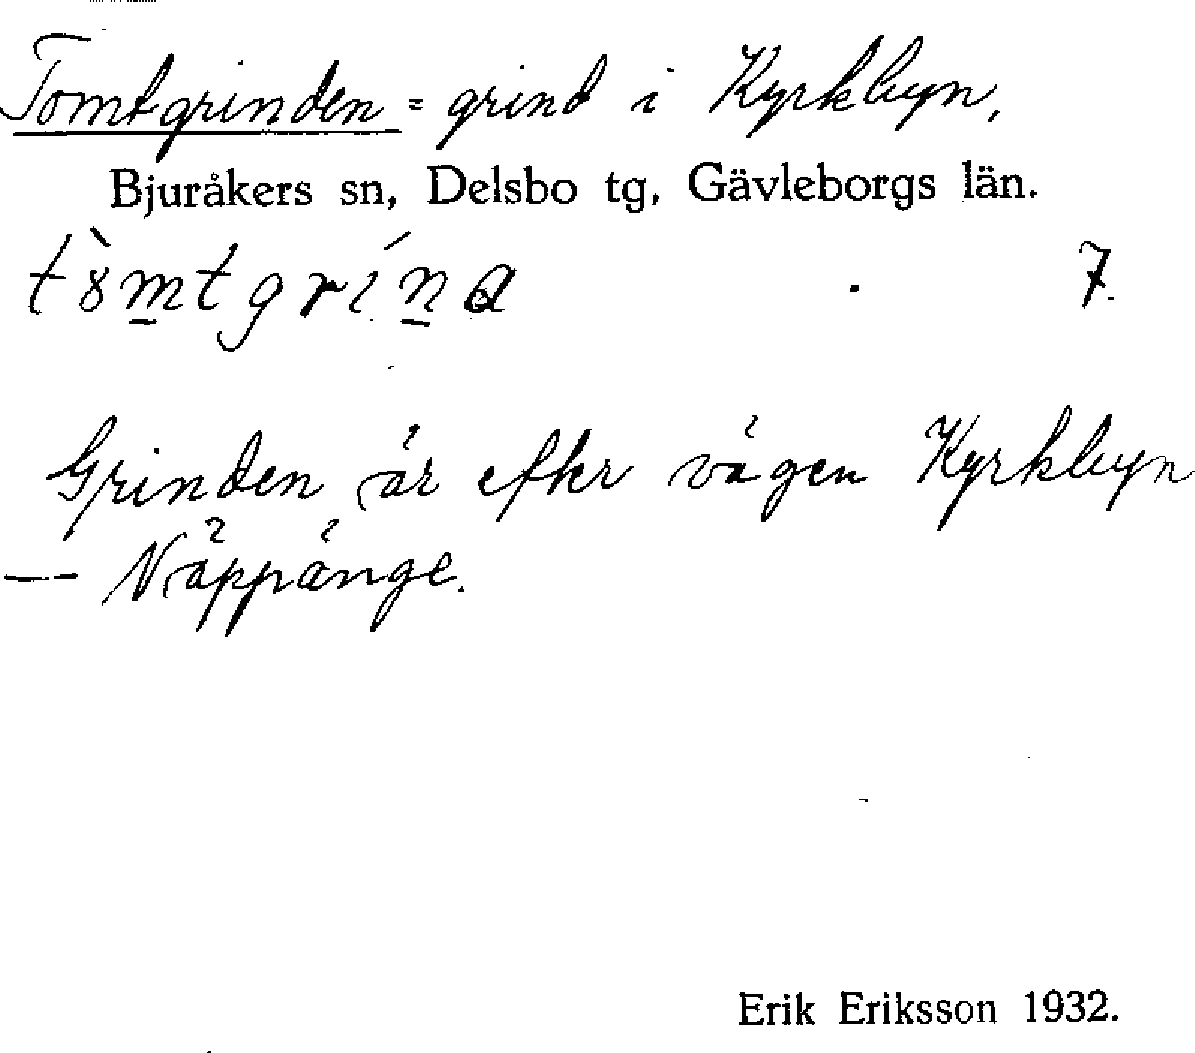 Tomtgrinden = grind i Kyrkbyn,
Bjuråkers sn, Delsbo tg, Gävleborgs län.
7.
Grinden är efter vägen Kyrkbyn
— Näppänge.
Erik Eriksson 1932.